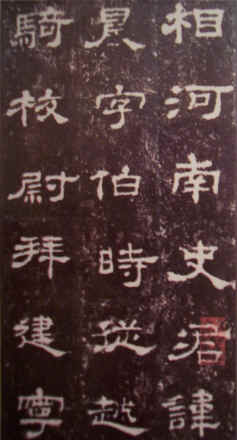 相河南史君諱
晨字伯時從越
騎校尉拜建寧